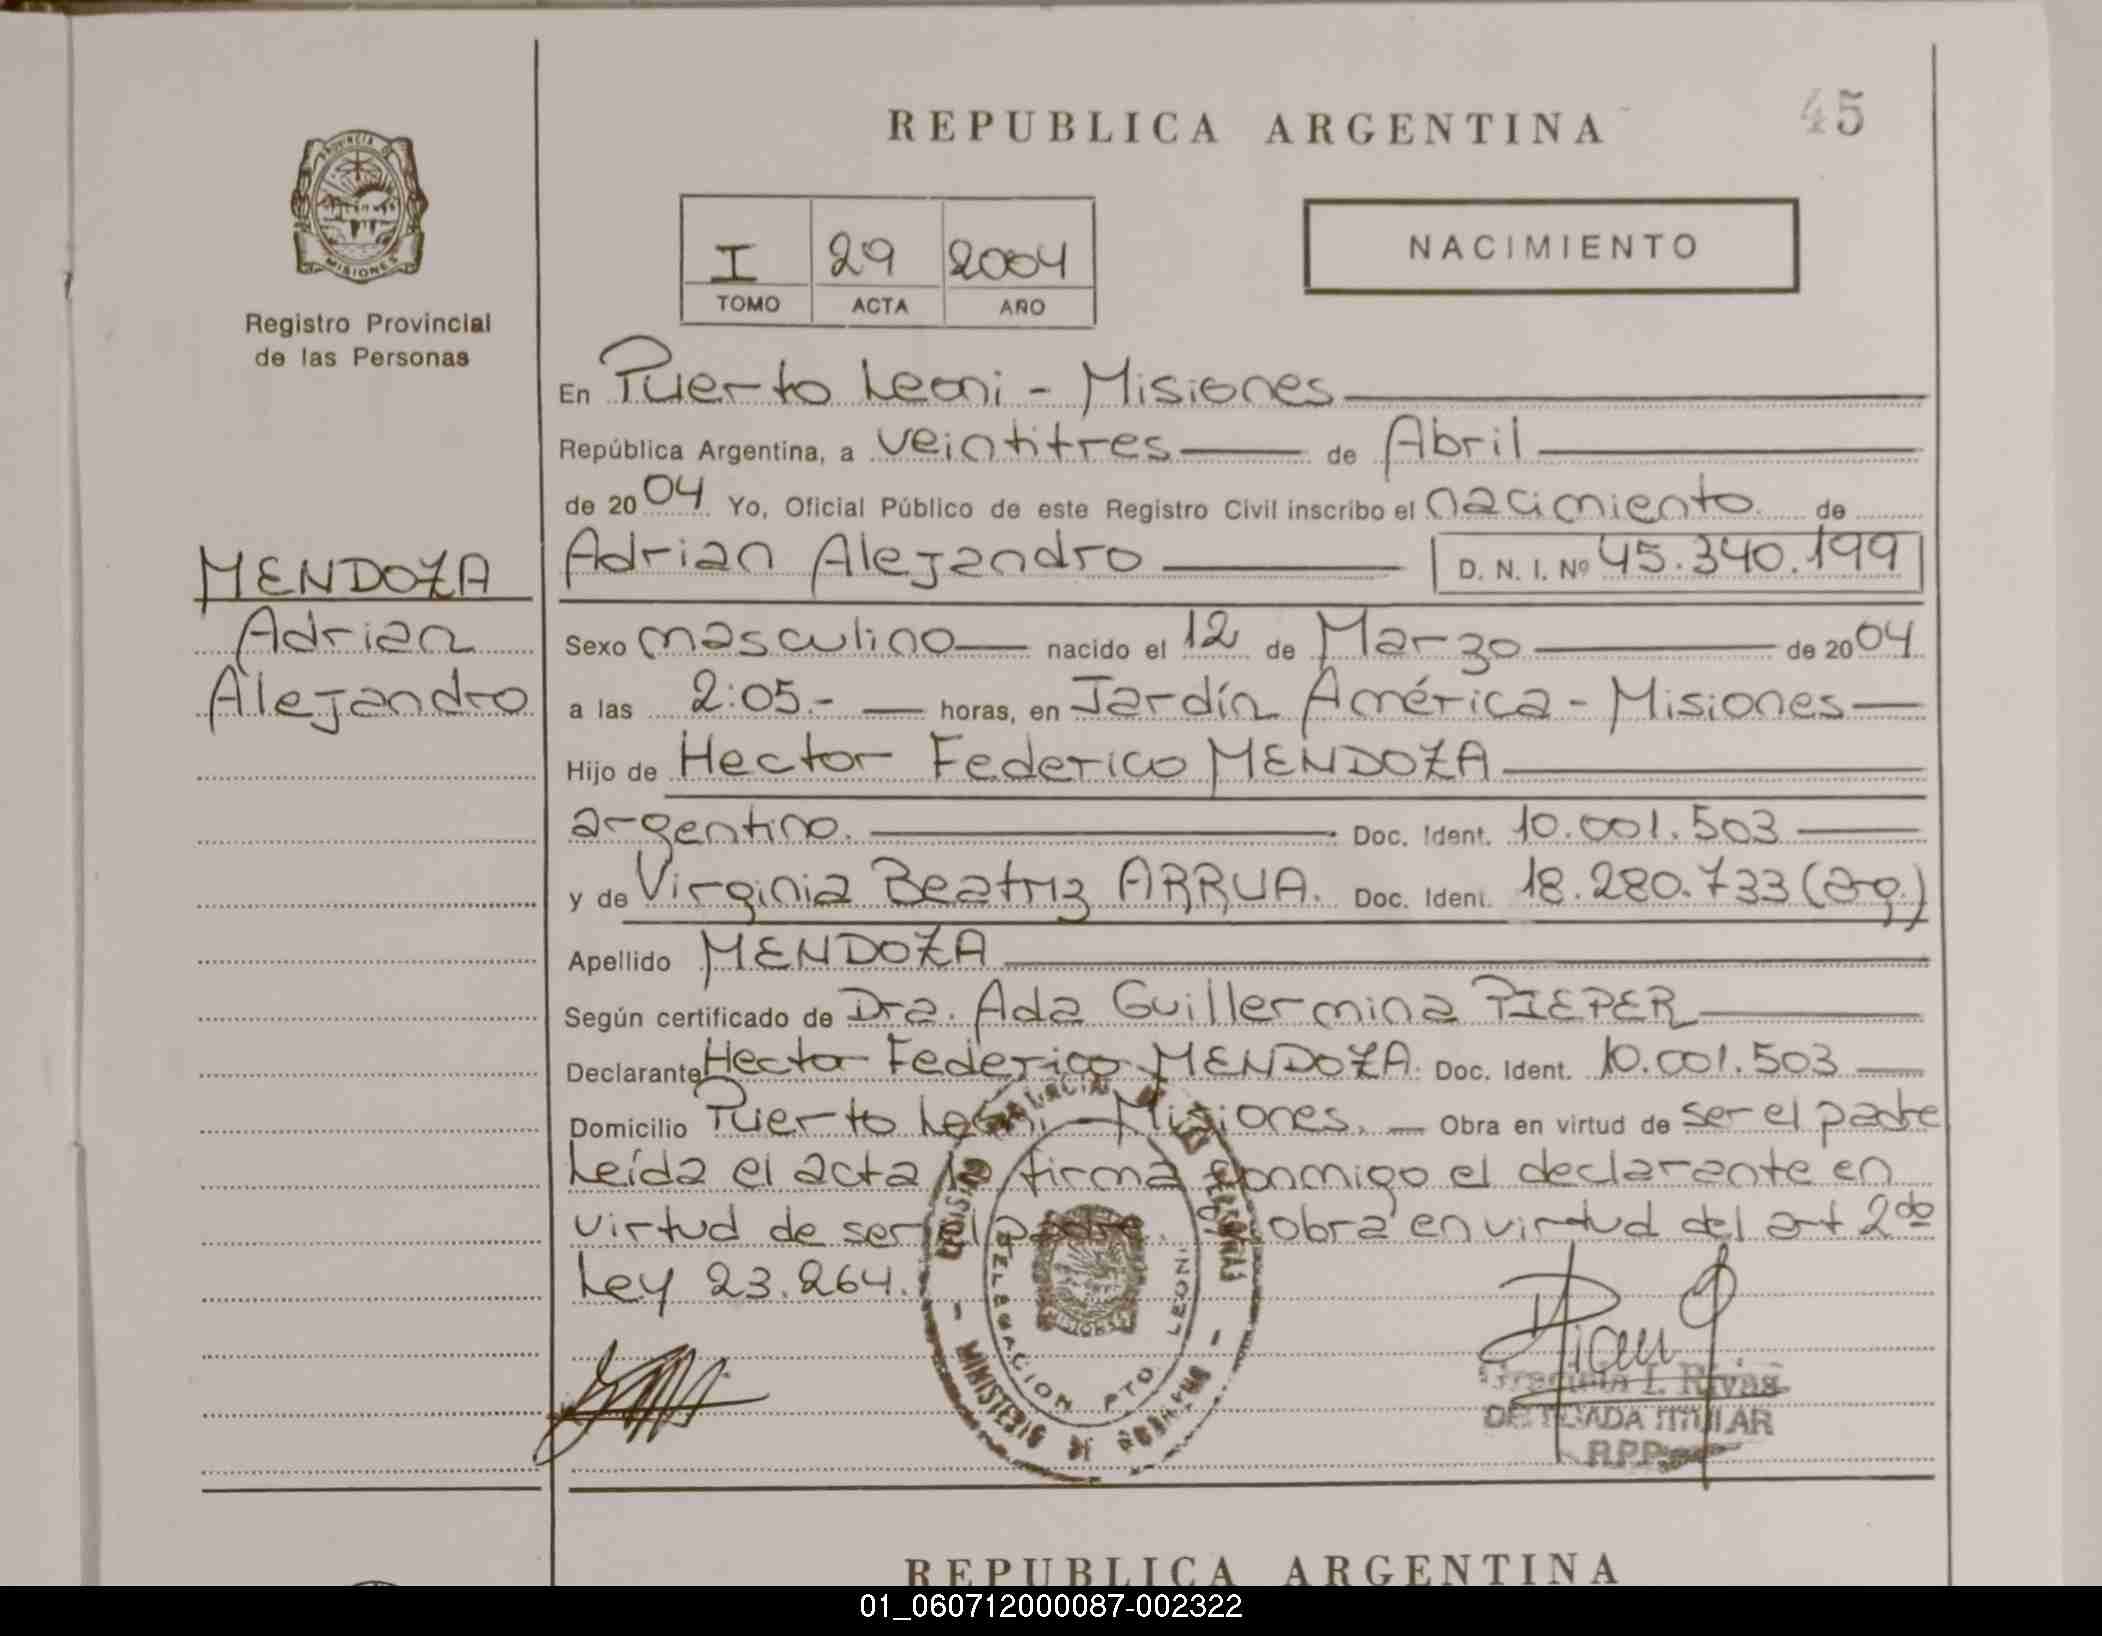 REPUBLICA ARGENTINA
45
PROVINCIA DE
MISIONES
Registro Provincial
de las Personas
I 29 2004
TOMO ACTA AÑO
NACIMIENTO
En Puerto Leoni - Misiones
República Argentina, a veintitres de Abril
de 2004 Yo, Oficial Público de este Registro Civil inscribo el nacimiento de
MENDOZA
Adrian
Alejandro
Adrian Alejandro D. N. I. Nº 45.340.199
Sexo masculino nacido el 12 de Marzo de 2004
a las 2:05.- horas, en Jardín América - Misiones
Hijo de Hector Federico MENDOZA
argentino. Doc. Ident. 10.001.503
y de Virginia Beatriz ARRUA. Doc. Ident. 18.280.733 (arg.)
Apellido MENDOZA
Según certificado de Dra. Ada Guillermina PIEPER
Declarante Hector Federico MENDOZA. Doc. Ident. 10.001.503
Domicilio Puerto Leoni - Misiones. Obra en virtud de ser el padre
Leída el acta la firma conmigo el declarante en
virtud de ser el padre. obra en virtud del art 2do
Ley 23.264.
DELEGACION PTO. LEONI.
MINISTERIO DE GOBIERNO
Graciela I. Rivas
DELEGADA TITULAR
RPP
REPUBLICA ARGENTINA
01_060712000087-002322